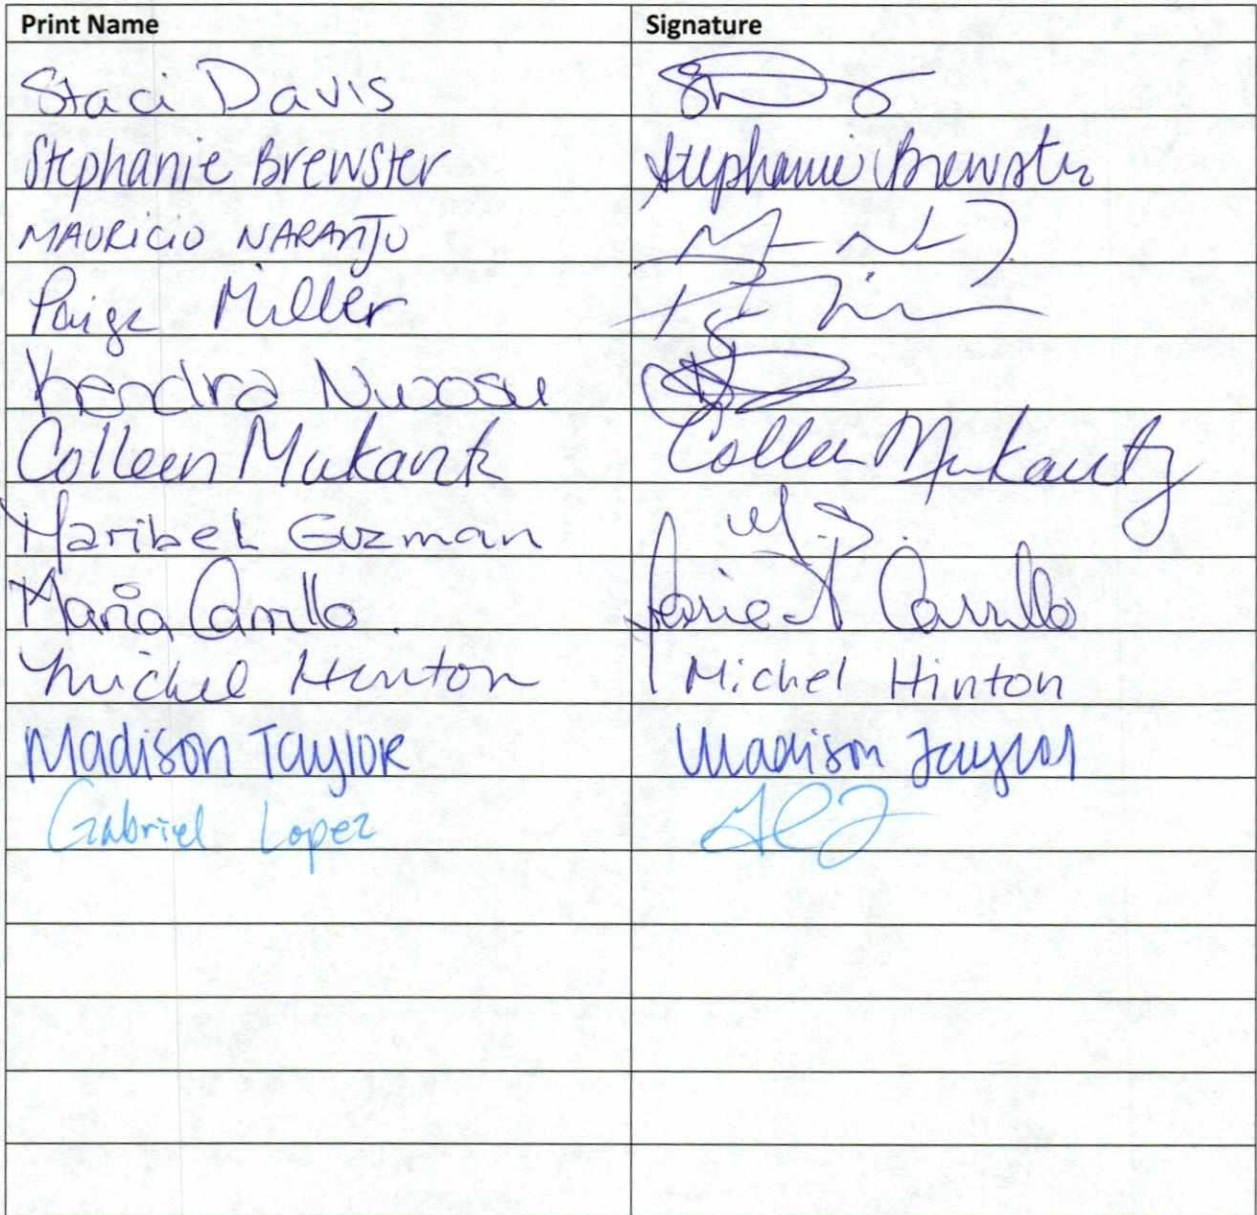 Print Name Signature
Staci Davis
Stephanie Brewster Stephanie Brewster
MAURICIO NARANJO
Paige Miller
Kendra Nwosu
Colleen Colleen
Maribel Guzman M.G.
Maria Carrillo Carrillo
Michel Hinton Michel Hinton
Madison Taylor Madison Taylor
Gabriel Lopez